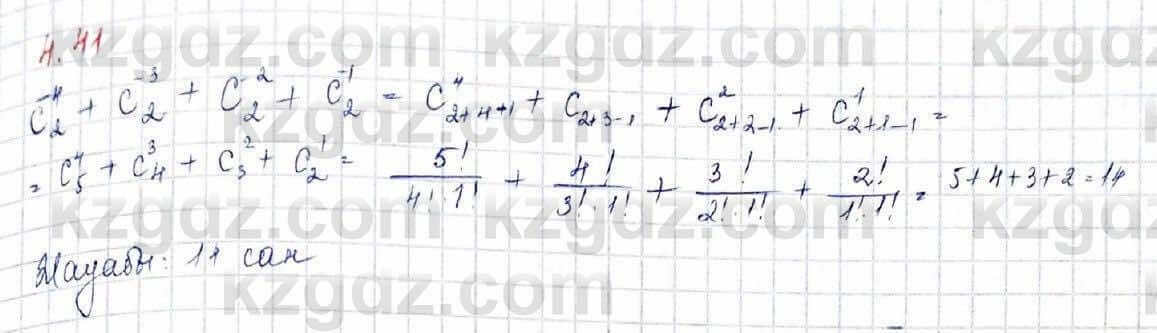 4.41
C̄₂⁴ + C̄₂³ + C̄₂² + C̄₂¹ = C⁴₂₊₄₊₁ + C₂₊₃₋₁ + C²₂₊₂₋₁ + C¹₂₊₁₋₁ =
= C₅⁴ + C₄³ + C₃² + C₂¹ = 5!/(4!·1!) + 4!/(3!·1!) + 3!/(2!·1!) + 2!/(1!·1!) = 5+4+3+2=14
Жауабы: 14 сан
kzgdz.com kzgdz.com kzgdz.com
kzgdz.com kzgdz.com
kzgdz.com kzgdz.com kzgdz.com
kzgdz.com kzgdz.com